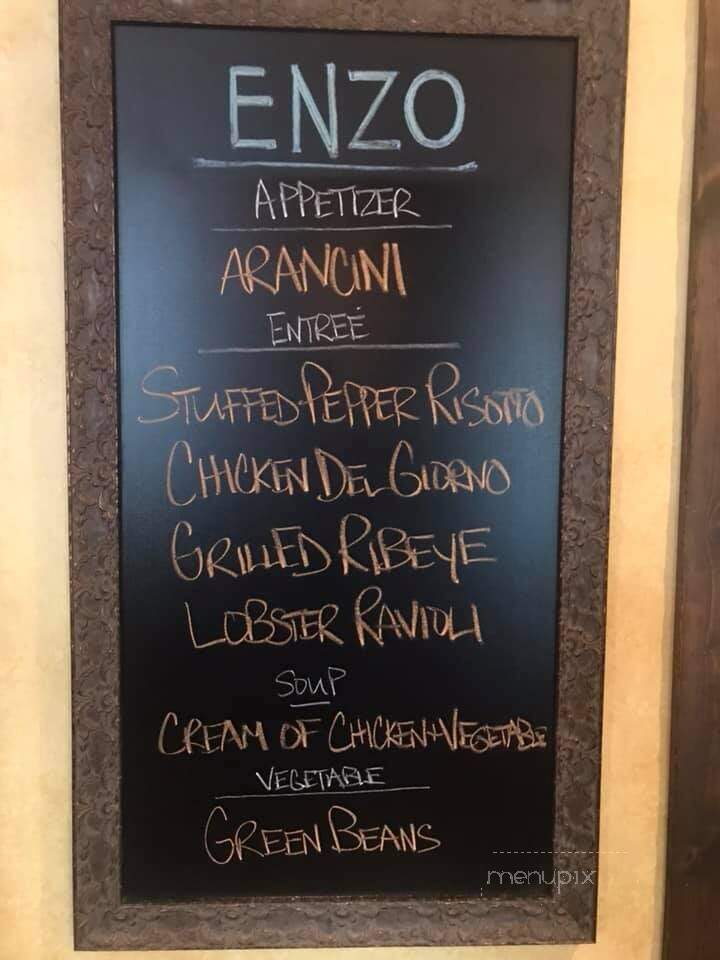 ENZO
APPETIZER
ARANCINI
ENTREÉ
STUFFED PEPPER RISOTTO
CHICKEN DEL GIORNO
GRILLED RIBEYE
LOBSTER RAVIOLI
SOUP
CREAM OF CHICKEN+VEGETABLE
VEGETABLE
GREEN BEANS
menupix